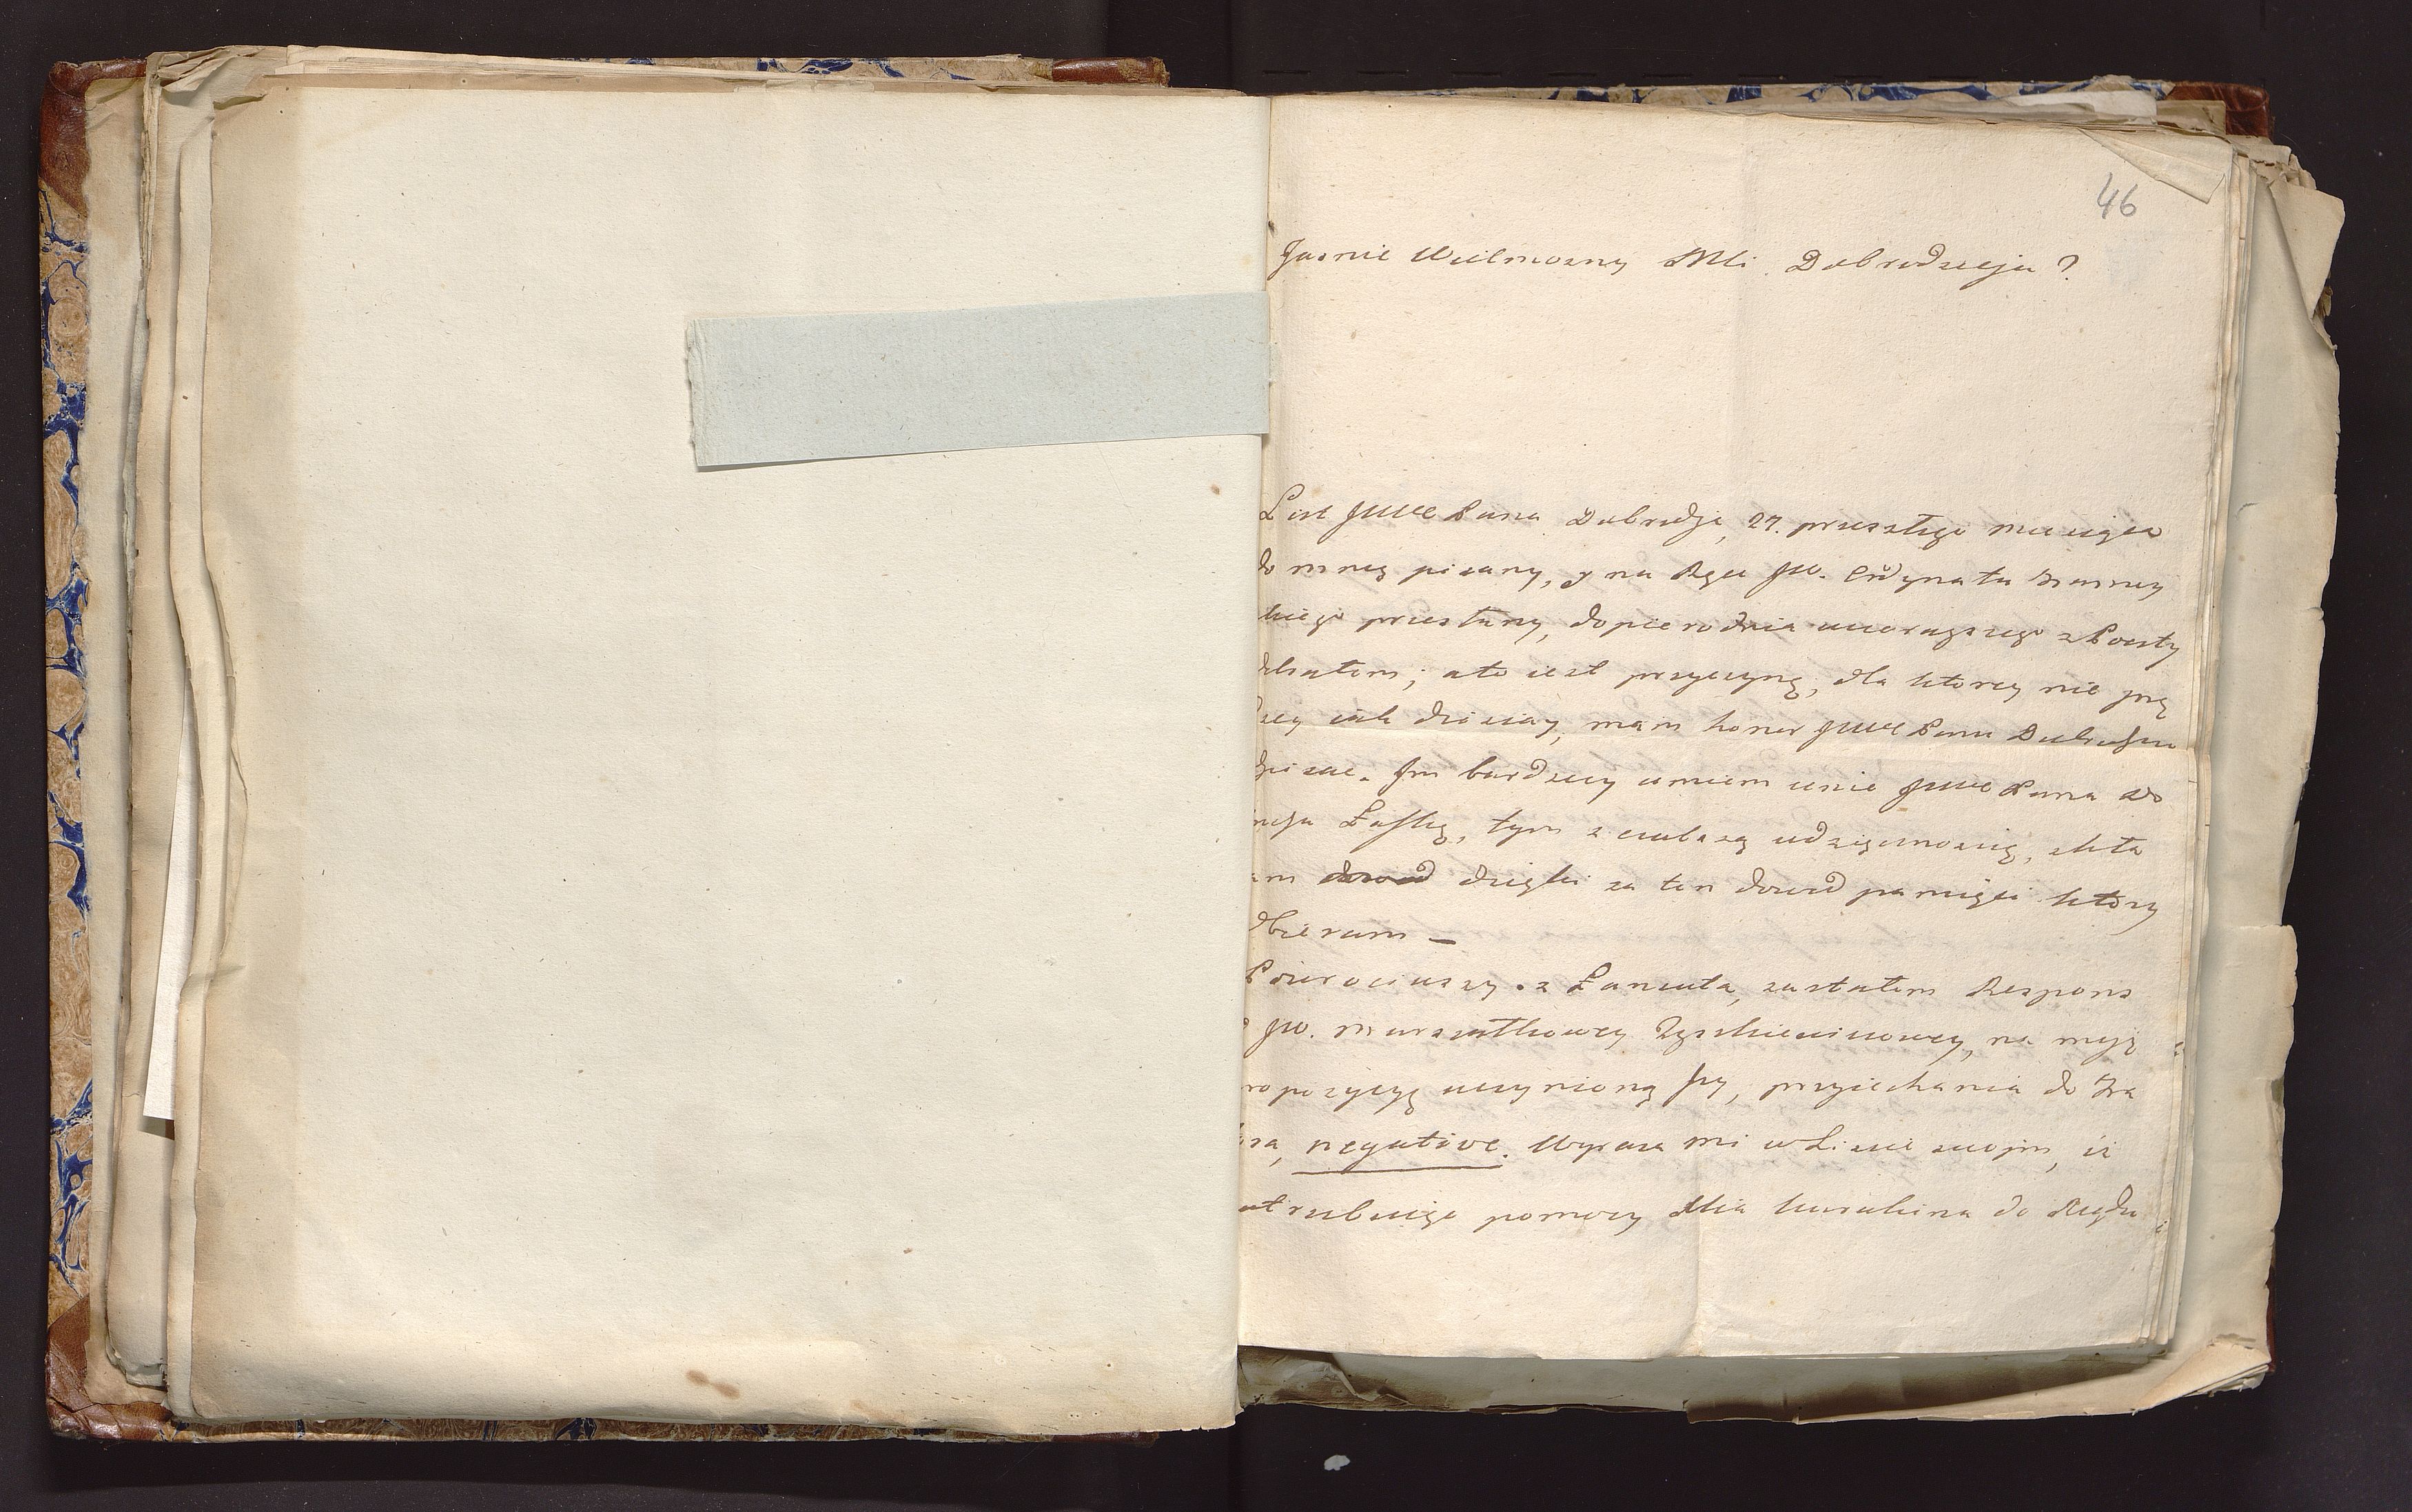 46
Jasnie Wielmozny Mci. Dobrodzieju?
List JWWC Pana Dobrodzi, 27. przeszłego miesiąca
do mnię pisany, y na Ręce JW. Ordynata Zamoy
skiego przesłany, dopiero dnia wczorayszego z Poczty
debrałem; a to iest przyczyną, dla ktorey nie prę
dzey iak dzisiay, mam honor JWWC Panu Dobrodzie
pisac. Im bardziey umiem cenic JWWC Pana Do
Łaskę, tym z większą wdzięcznoscią, skła
am dowod dzięki za ten dowod pamięci ktory
dbieram –
Powrociwszy z Łancuta, zastałem Respons
JW. Marszałkowey Tyszkiewiczowey, na moją
ropozycyę uczynioną Jey, przyiechania do Kra
, negative. Wyraza mi w Liscie swoim, iż
potrzebuięc pomocy dla do